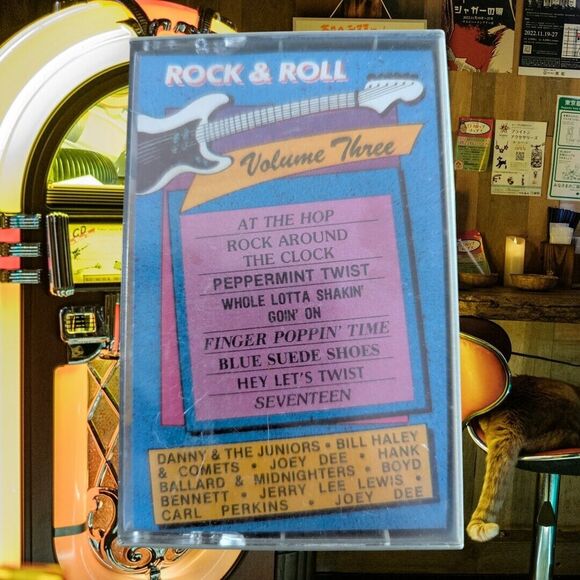 ROCK & ROLL
Volume Three
AT THE HOP
ROCK AROUND
THE CLOCK
PEPPERMINT TWIST
WHOLE LOTTA SHAKIN'
GOIN' ON
FINGER POPPIN' TIME
BLUE SUEDE SHOES
HEY LET'S TWIST
SEVENTEEN
DANNY & THE JUNIORS • BILL HALEY
& COMETS • JOEY DEE • HANK
BALLARD & MIDNIGHTERS • BOYD
BENNETT • JERRY LEE LEWIS •
CARL PERKINS • JOEY DEE
ジャガーの眼
2022.11.19-27
CD